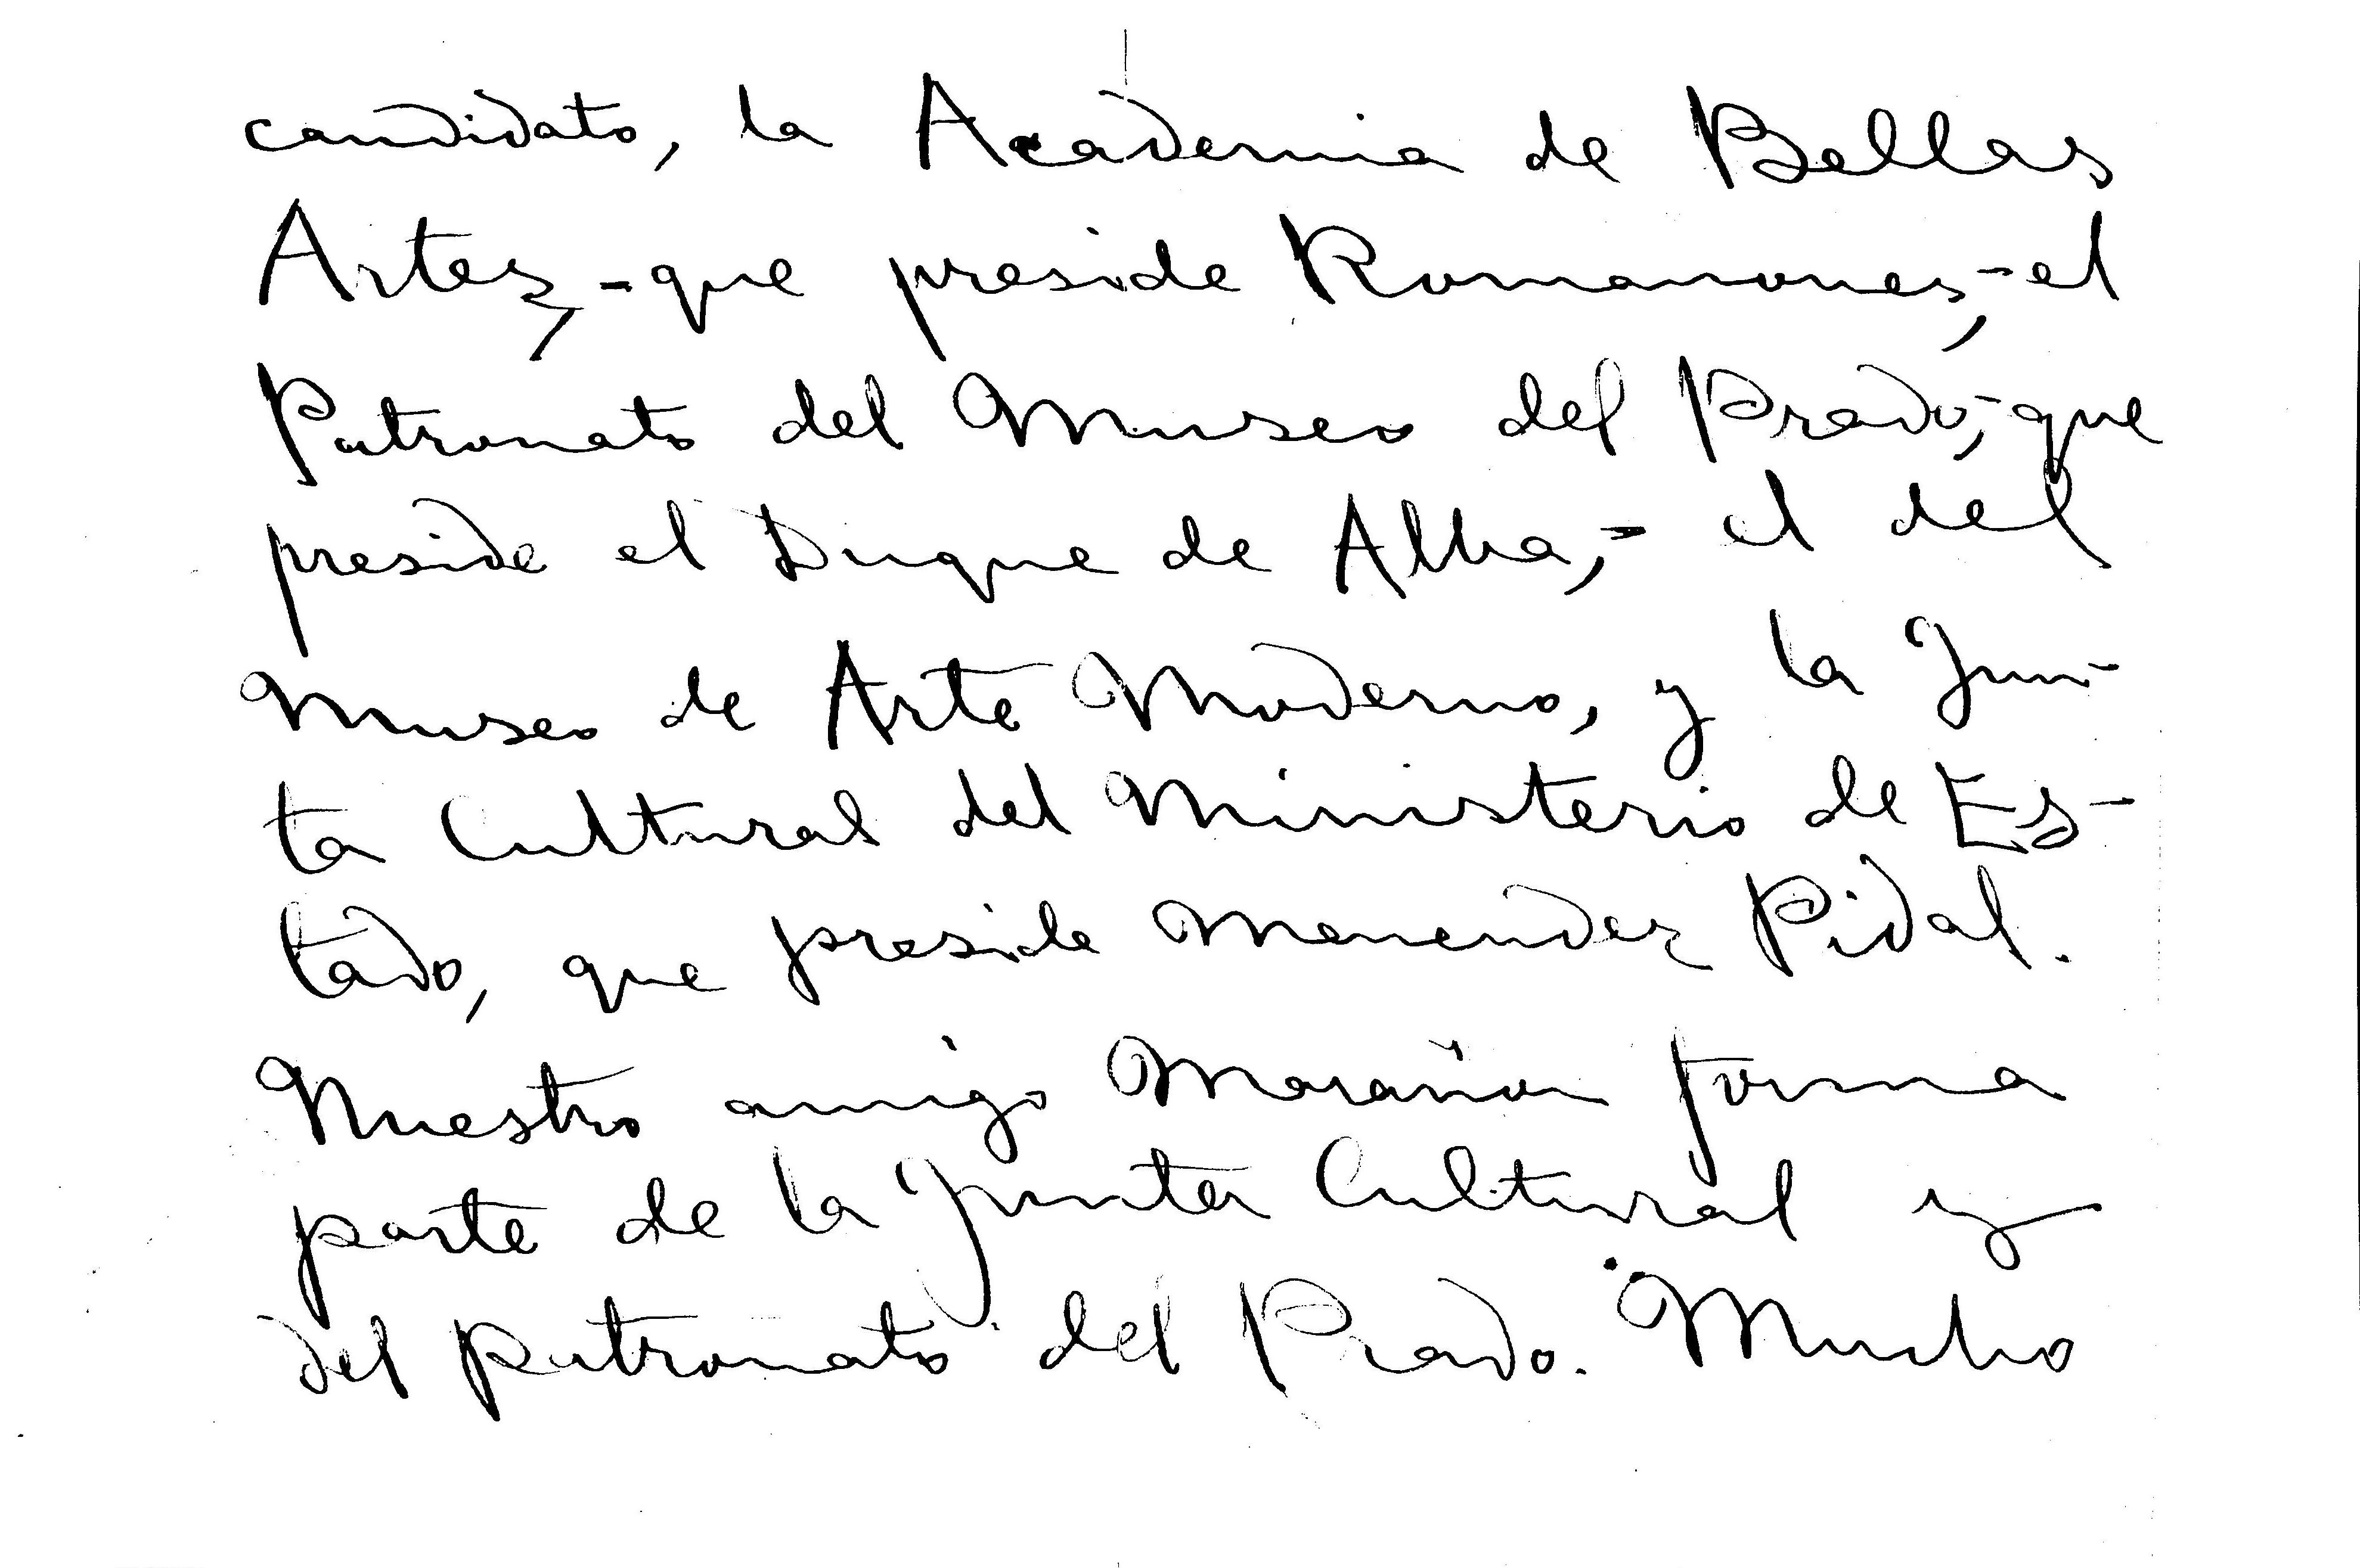 candidato, la Academia de Bellas
Artes,-que preside Romanones,-el
Patronato del Museo del Prado,-que
preside el Duque de Alba,- el del
Museo de Arte Moderno, y la Jun-
ta Cultural del Ministerio de Es-
tado, que preside Menendez Pidal.
Nuestro amigo Marañon forma
parte de la Junta Cultural y
del patronato del Prado. Mucho